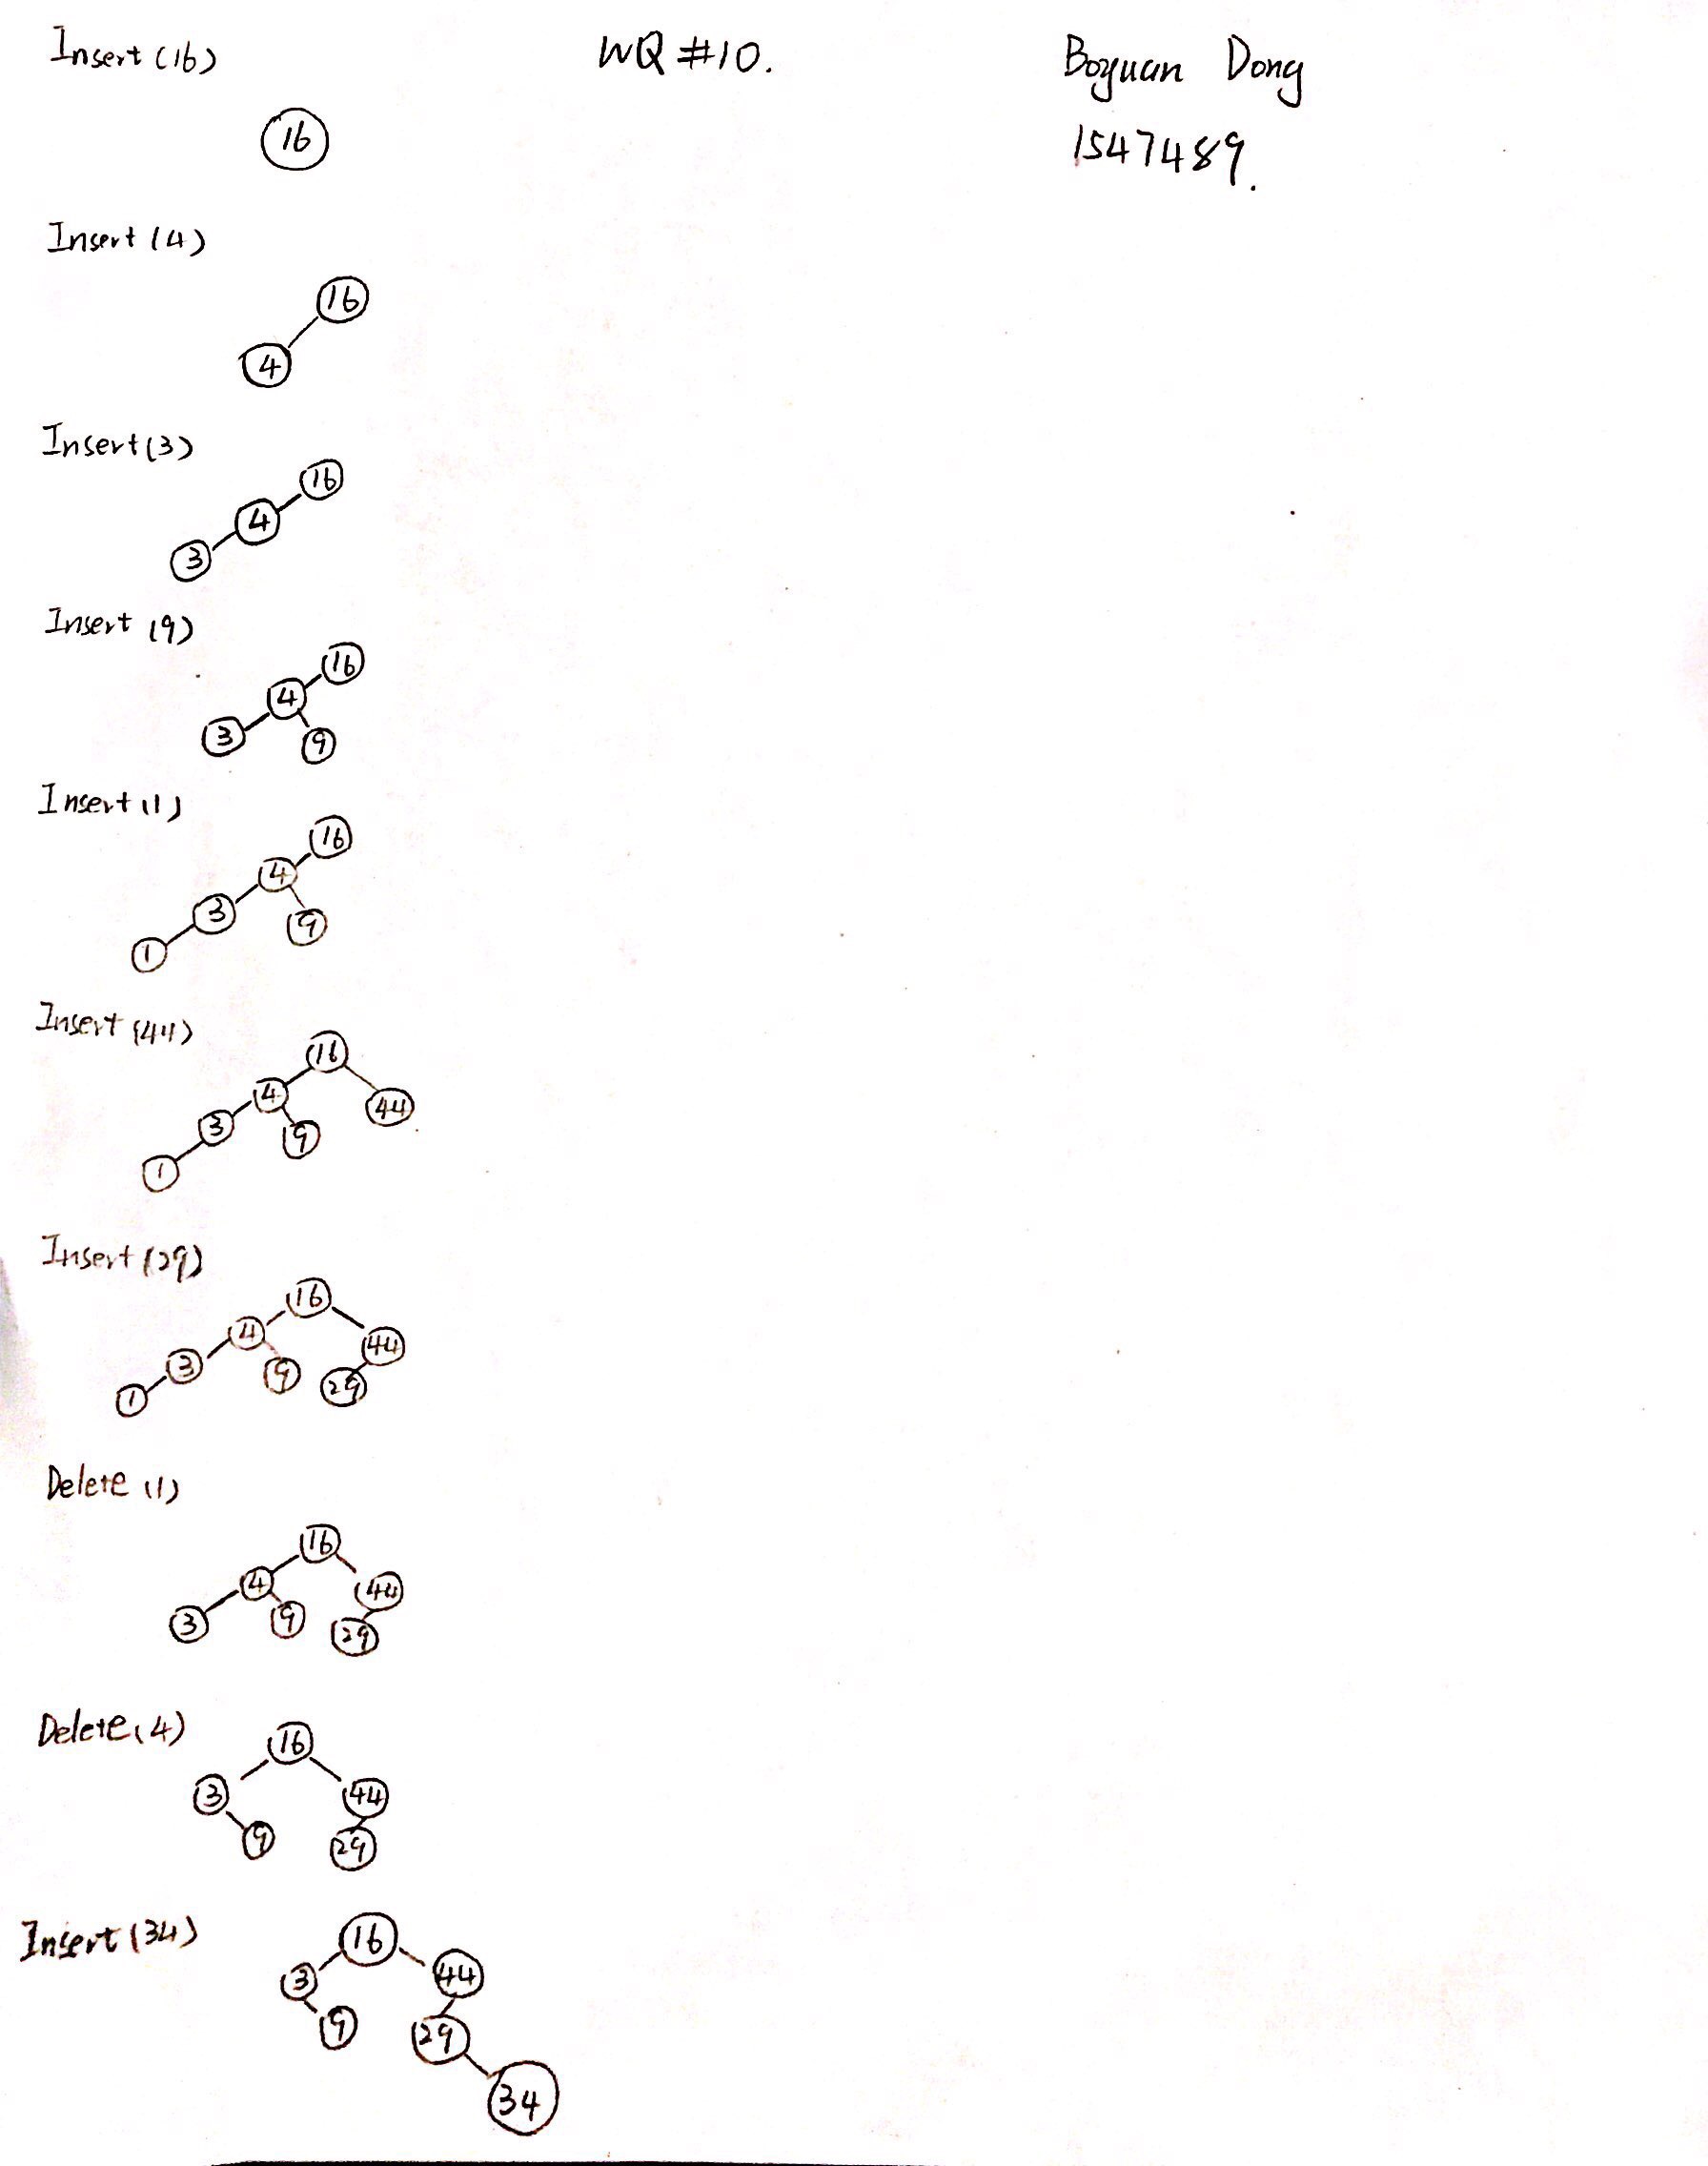 Insert (16)
WQ #10.
Boyuan Dong
1547489.
16
Insert (4)
16
4
Insert (3)
16
4
3
Insert (9)
16
4
3 9
Insert (1)
16
4
3 9
1
Insert (44)
16
4 44
3 9
1
Insert (29)
16
4 44
3 9 29
1
Delete (1)
16
4 44
3 9 29
Delete (4)
16
3 44
9 29
Insert (34)
16
3 44
9 29
34